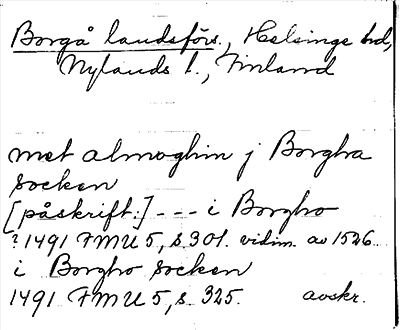 Borgå landsförs., Helsinge hd,
Nylands l., Finland
met almoghin j Borgha
socken
[påskrift:] --- i Borgho
? 1491 FMU 5, s. 301. vidim. av 1526.
i Borgho socken
1491 FMU 5, s. 325. avskr.